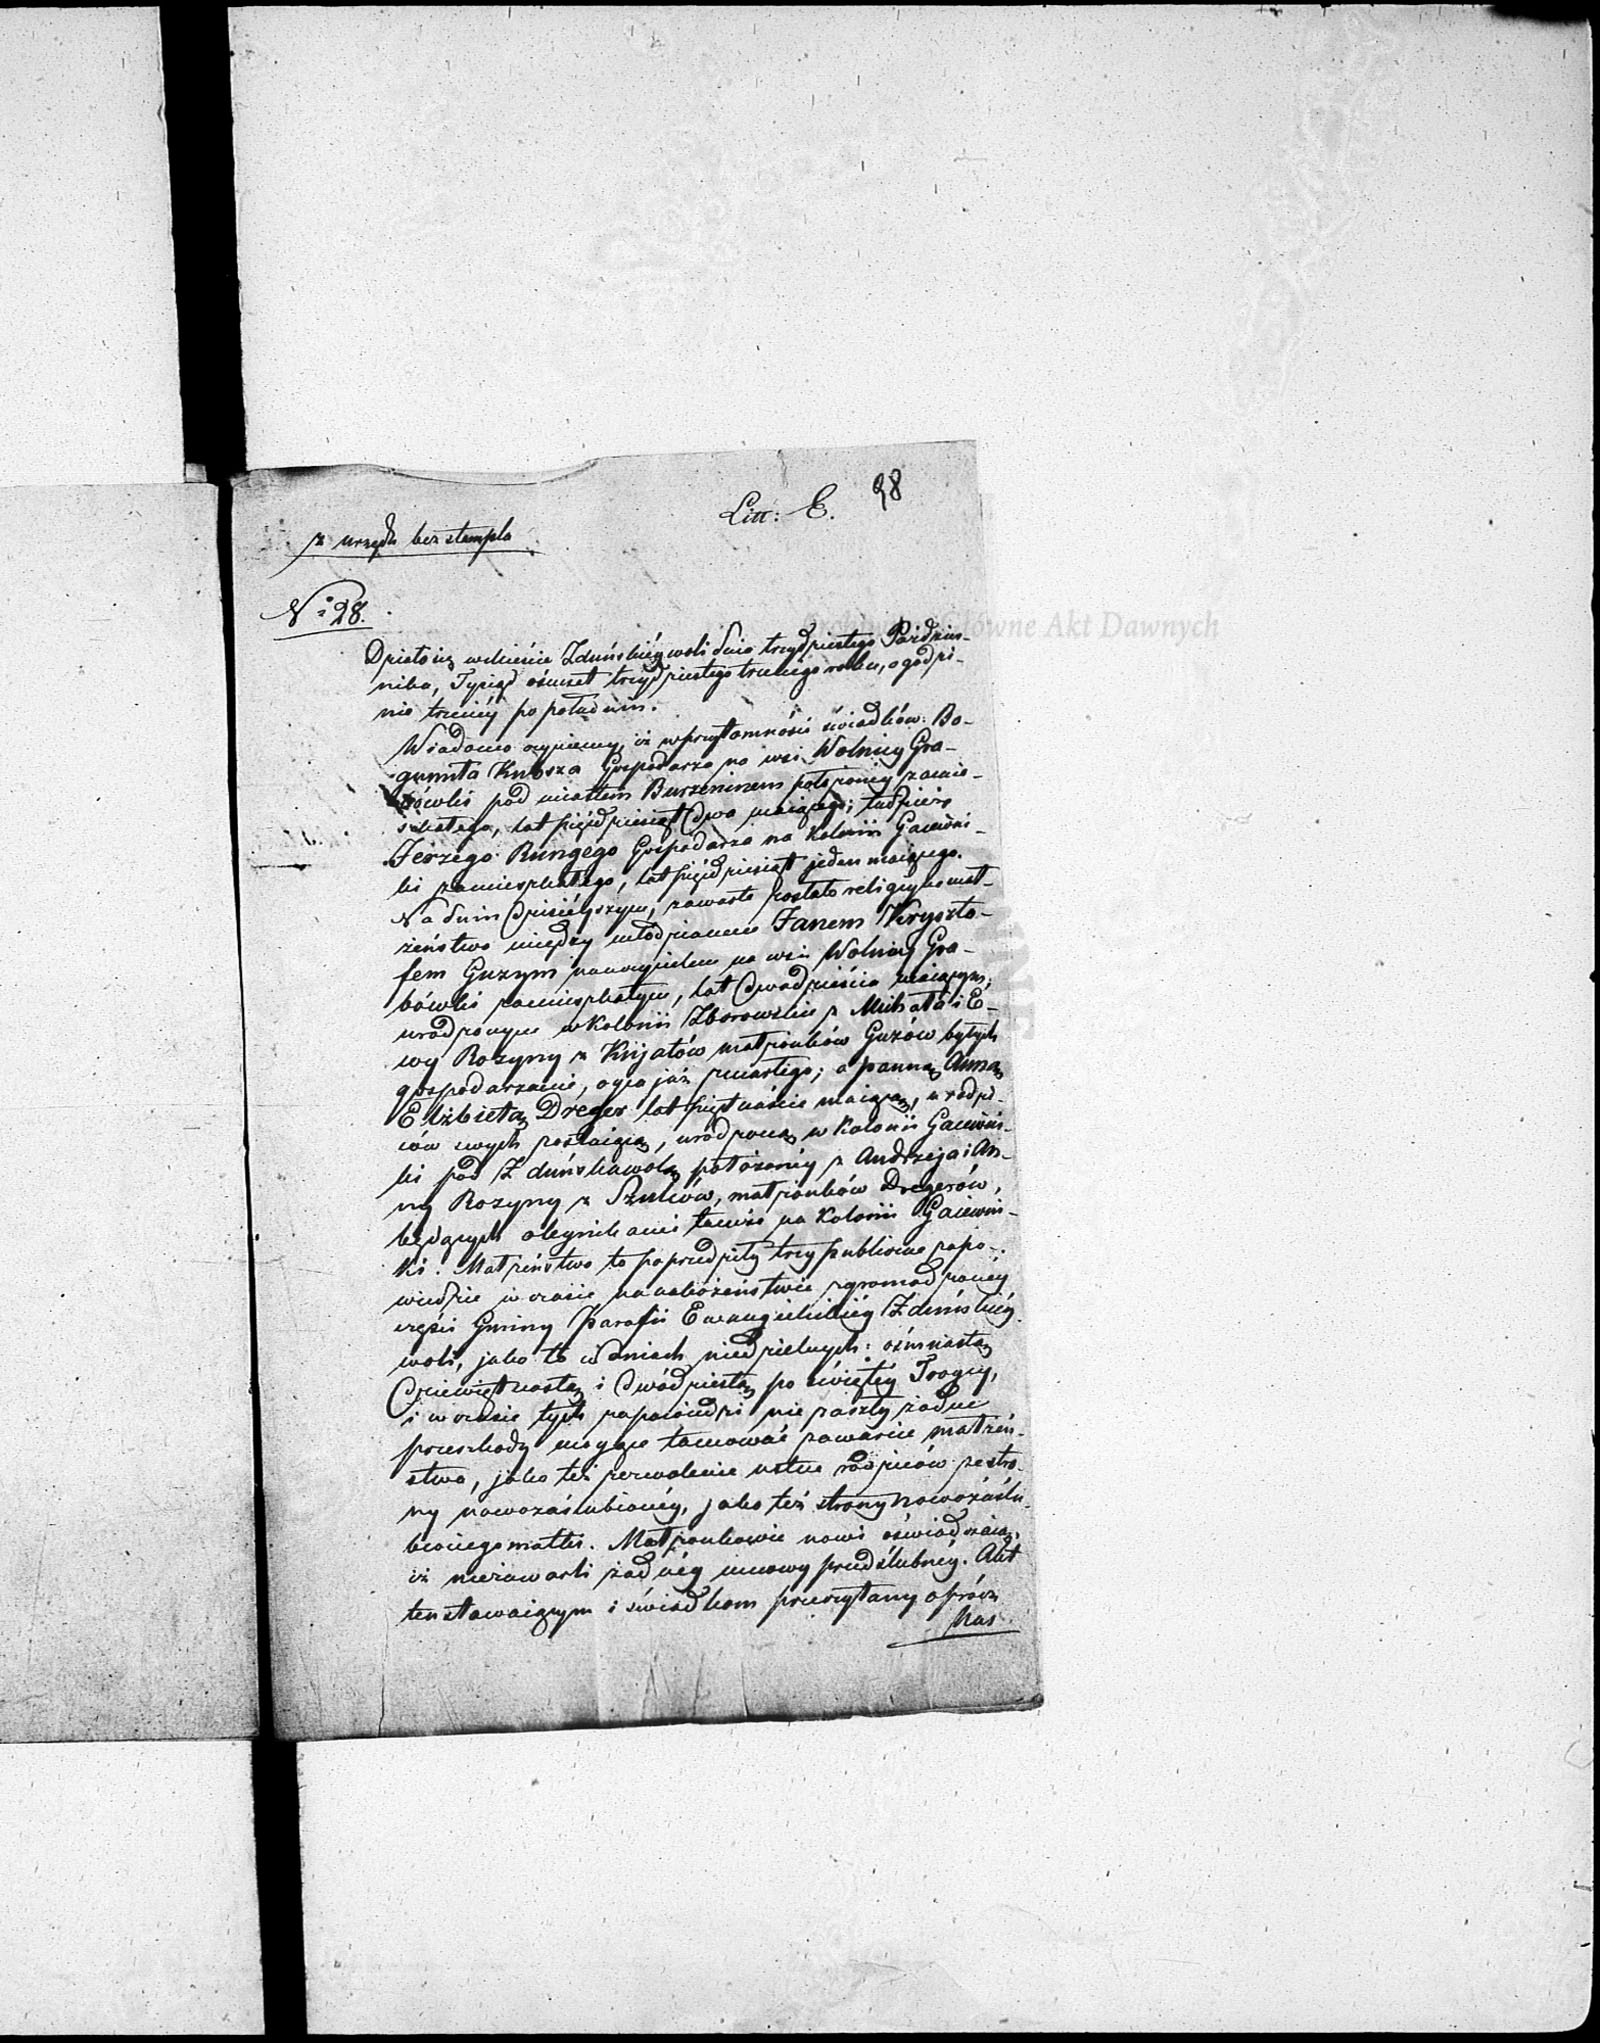 Litt: E. 28
z urzędu bez stempla
Nº 28.
Archiwum Główne Akt Dawnych
Działo się w mieście Zduńskiéy woli dnia trzydziestego Paździer-
nika, Tysiąc ośmset trzydziestego trzeciego roku, o godzi-
nie trzeciéy po południu.
Wiadomo czyniemy, iż w przytomności świadków: Bo-
gumiła Knosza Gospodarza na wsi Wolnicy Gra-
bówki pod miastem Burzeninem położoney zamie-
szkałego, lat pięćdziesiąt dwa maiącego; tudzież
Jerzego Rungego Gospodarza na Kolonii Gaiewni-
ki zamieszkałego, lat pięćdziesiąt jeden maiącego.
Na dniu dzisiéyszym, zawarte zostało religijne mał-
żeństwo między młodzianem Janem Krysztо-
fem Guzym nauczycielem na wsi Wolnicy Gra-
bówki zamieszkałym, lat dwadzieścia maiącym,
urodzonym w Kolonii Zborowskie z Michała i E-
wy Rozyny z Knjatów małżonków Guzów byłych
gospodarzami, oyca już zmarłego; a panną Anną
Elżbietą Dréger lat piętnaście maiącą, u rodzi-
ców swych zostaiącą, urodzoną w Kolonii Gaiewni-
ki pod Zduńskawolą położonéy z Andrzeja i An-
ny Rozyny z Szulców, małżonków Dregerów,
będących okupnikami tamże na Kolonii Gaiewni-
ki. Małżeństwo to poprzedziły trzy publiczne zapo-
wiedzie w czasie na nabożeństwie zgromadzonéy
części Gminy Parafii Ewangielickiéy Zduńskiéy
woli, jako to w dniach niedzielnych: ośmnastą
dziewiętnastą i dwódziestą po świętéy Troycy,
i w czasie tych zapowiedzi nie zaszły żadne
przeszkody mogące tamować zawarcie małżeń-
stwa, jako też zezwolenie ustne rodziców ze stro-
ny nowozaślubionéy, jako też strony nowozaślu-
bionego matki. Małżonkowie nowi oświadczaią,
iż niezawarli żadnéy umowy przedślubnéy. Akt
ten stawaiącym i świadkom przeczytany oprócz
Nas